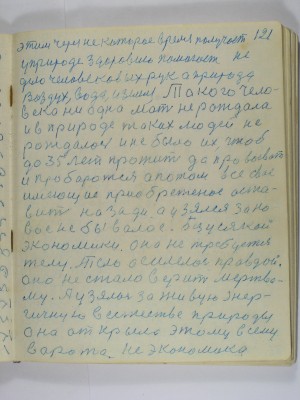 этим через некоторое время получает 121
у природе здоровие помогает не
дело человеков их рук а природа
воздух, вода, и земля. Такого чело-
века ни одна мать не рождала
и в природе таких людей не
рождалось и не было их, чтоб
до 35 лет прожить да провоевать
и пробороться а потом все свое
имеющие приобретеное оста-
вить назади, а узялся за но-
вое небывалое. Без усякой
экономики, оно не требуется
телу. Тело осилелось правдой.
Оно не стало верить мертво-
му. А узялся за живую энер-
гичную в естестве природы
она открыла этому всему
варота. Не экономика